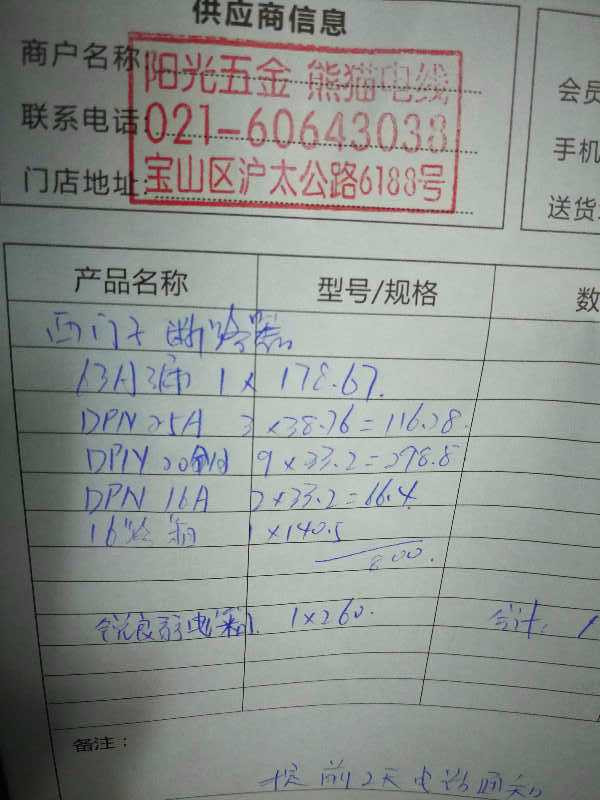 供应商信息
商户名称: 阳光五金 熊猫电线
联系电话: 021-60643038
门店地址: 宝山区沪太公路6188号
会员
手机
送货
产品名称 型号/规格 数
西门子 断路器
63A 1 × 178.67
DPN 25A 3 × 38.76 = 116.28
DPN 20A 9 × 33.2 = 298.8
DPN 16A 2 × 33.2 = 66.4
16路箱 1 × 140.5
800.
弱电箱 1 × 260. 合计: 1
备注:
提前2天电话通知